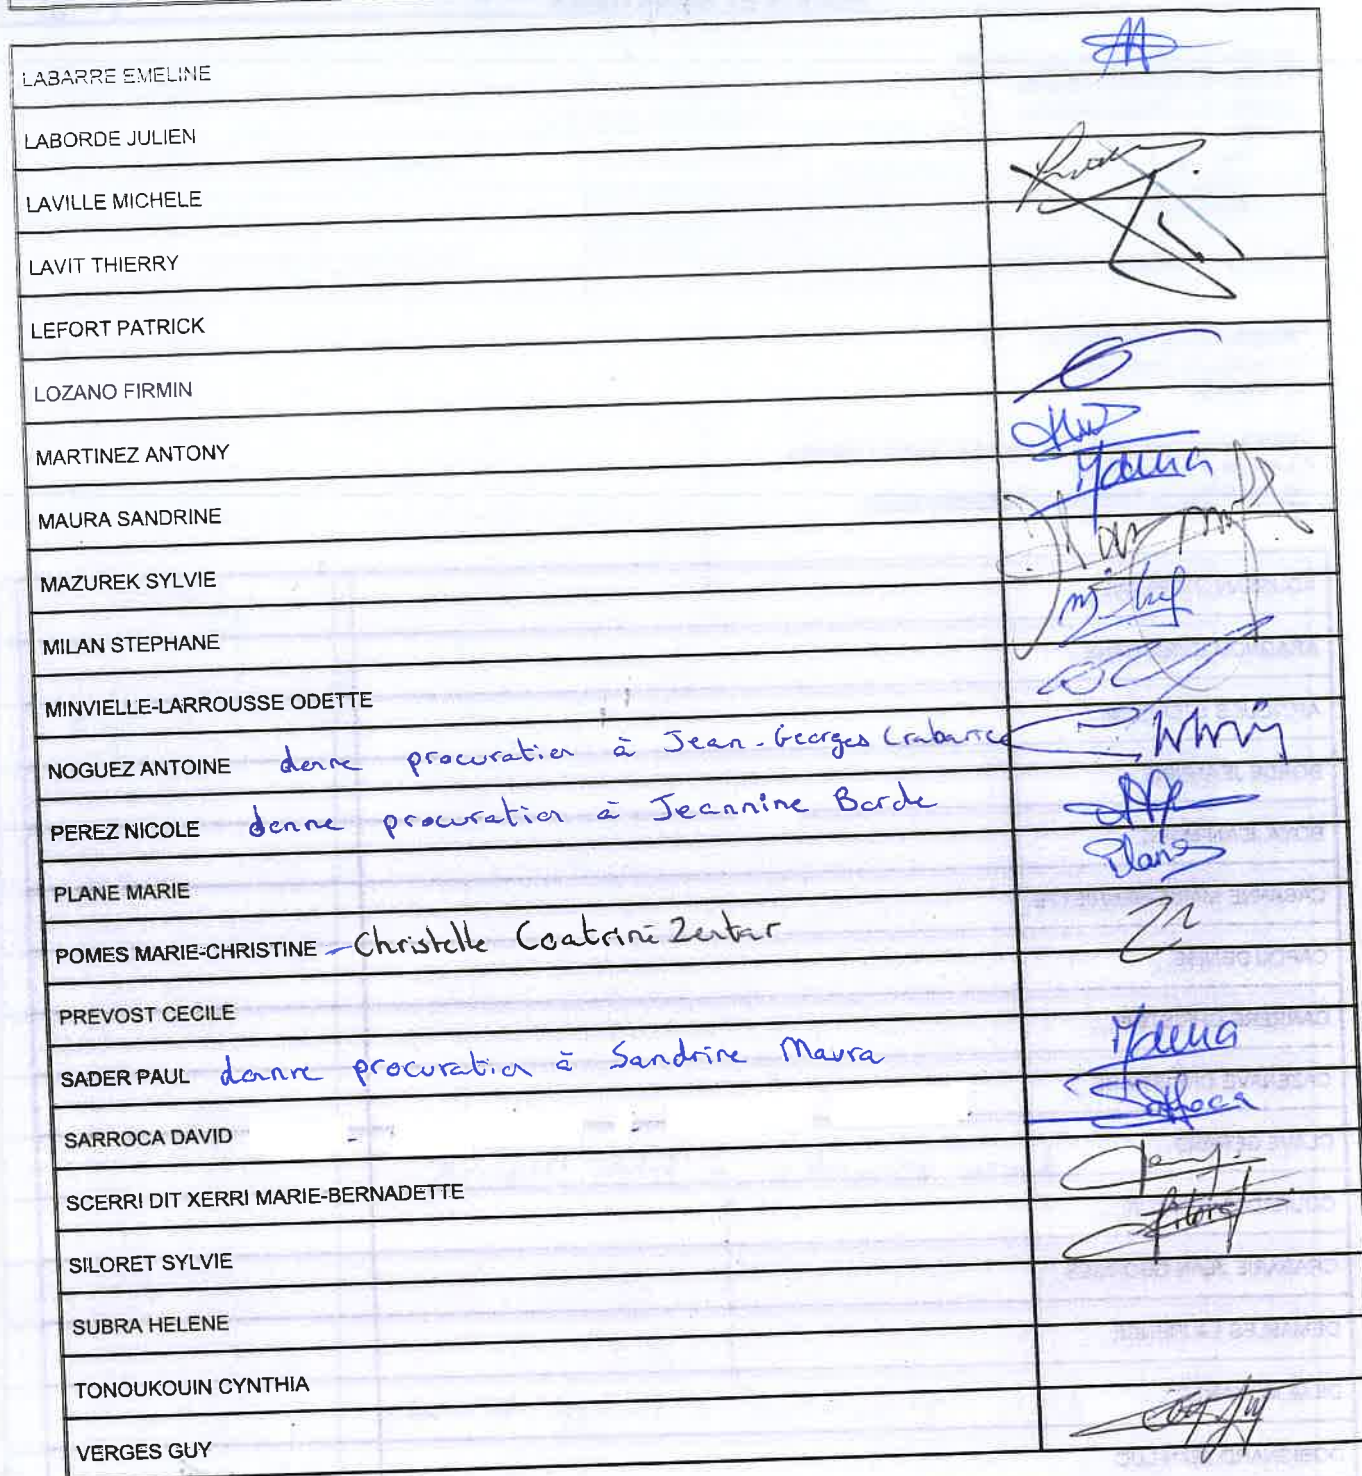 LABARRE EMELINE
LABORDE JULIEN
LAVILLE MICHELE
LAVIT THIERRY
LEFORT PATRICK
LOZANO FIRMIN
MARTINEZ ANTONY
MAURA SANDRINE Maura
MAZUREK SYLVIE
MILAN STEPHANE
MINVIELLE-LARROUSSE ODETTE
NOGUEZ ANTOINE donne procuration à Jean-Georges Crabarie
PEREZ NICOLE donne procuration à Jeannine Borde
PLANE MARIE Plane
POMES MARIE-CHRISTINE - Christelle Coatriné Zentar
PREVOST CECILE
SADER PAUL donne procuration à Sandrine Maura Maura
SARROCA DAVID Sarroca
SCERRI DIT XERRI MARIE-BERNADETTE
SILORET SYLVIE Siloret
SUBRA HELENE
TONOUKOUIN CYNTHIA
VERGES GUY